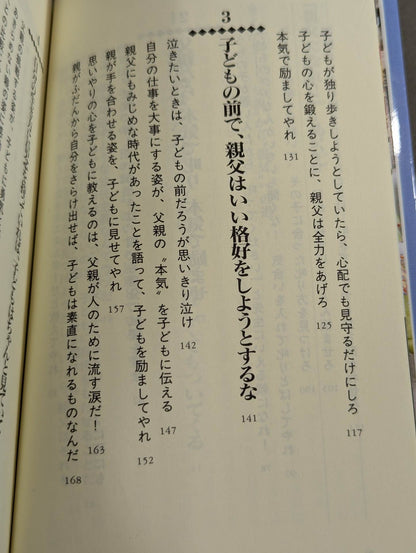 子どもが独り歩きしようとしていたら、心配でも見守るだけにしろ 117
子どもの心を鍛えることに、親父は全力をあげろ 125
本気で励ましてやれ 131
3
子どもの前で、親父はいい格好をしようとするな 141
泣きたいときは、子どもの前だろうが思いきり泣け 142
自分の仕事を大事にする姿が、父親の〝本気〟を子どもに伝える 147
親父にもみじめな時代があったことを語って、子どもを励ましてやれ 152
親が手を合わせる姿を、子どもに見せてやれ 157
思いやりの心を子どもに教えるのは、父親が人のために流す涙だ！ 163
親がふだんから自分をさらけ出せば、子どもは素直になれるものなんだ 168